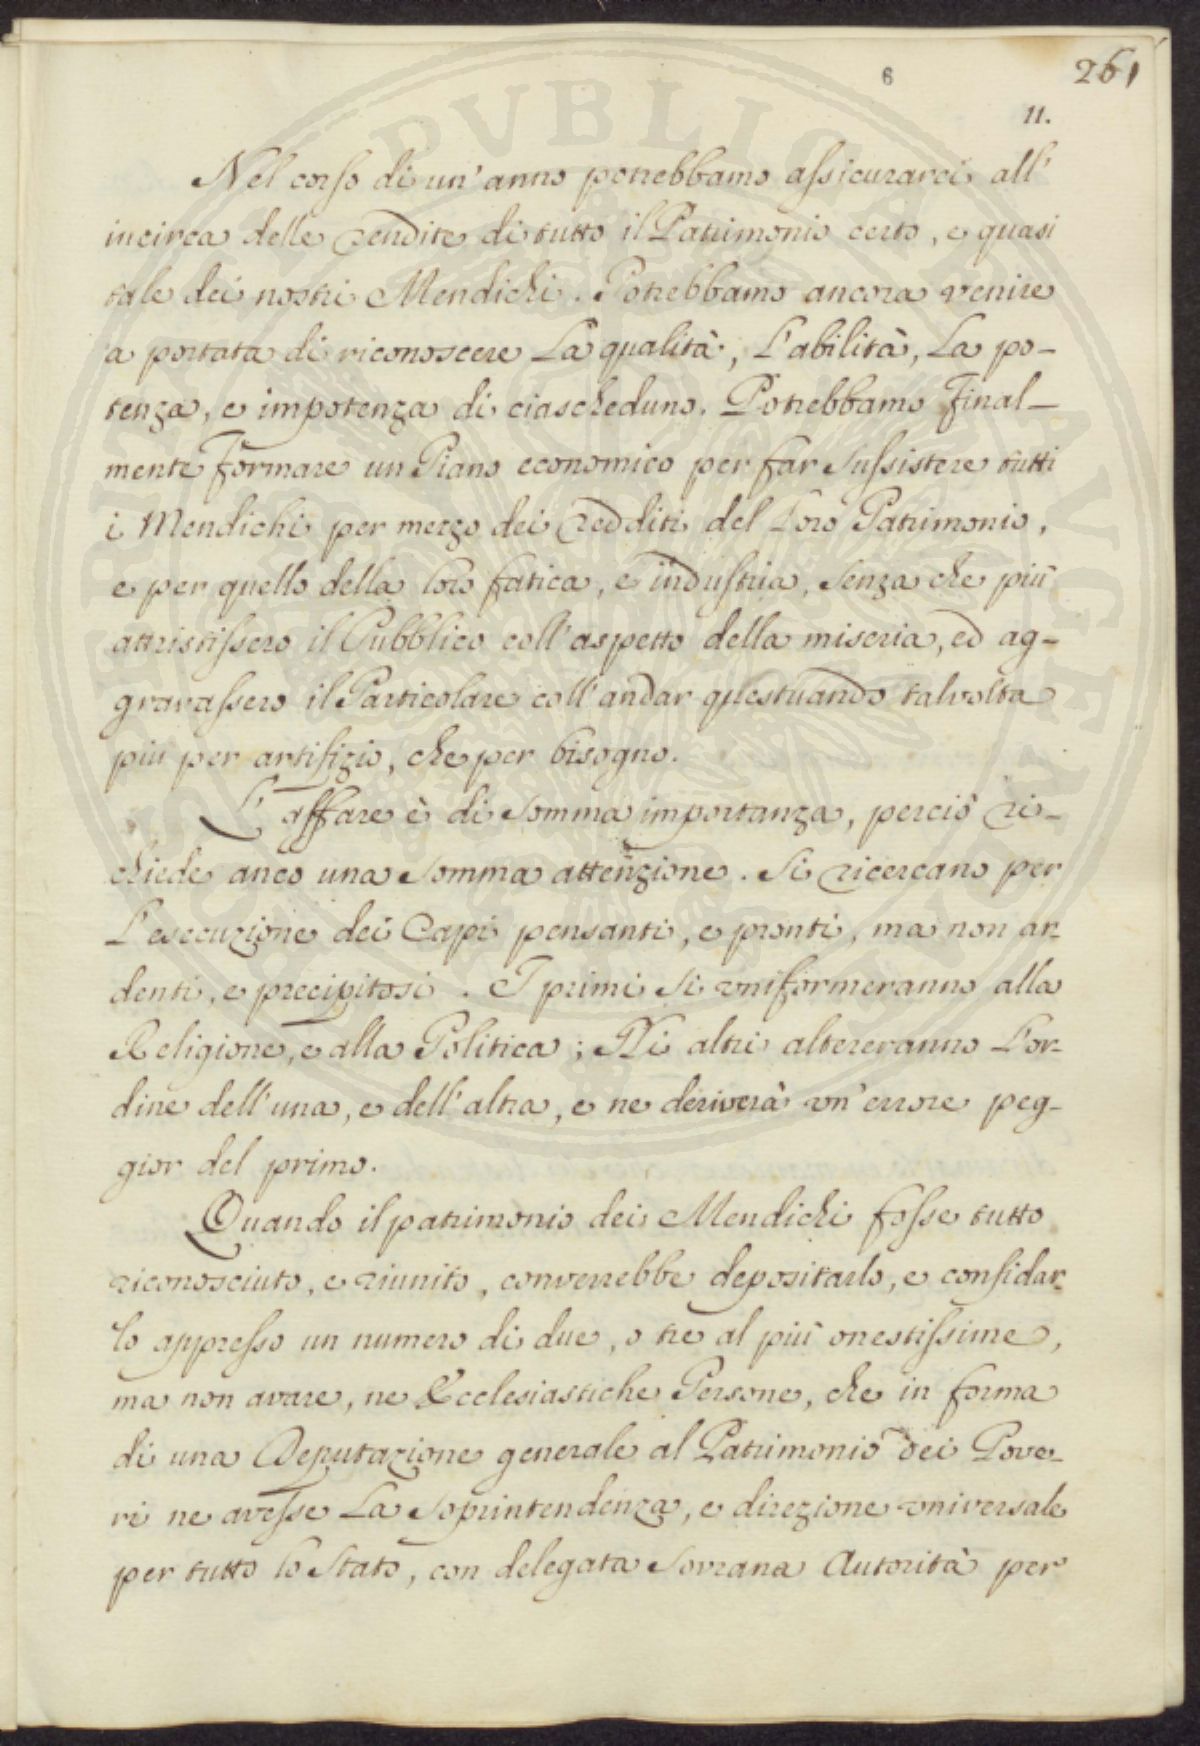 6
261
11.
Nel corso di un' anno potrebbamo assicurarci all'
incirca delle rendite di tutto il Patrimonio certo, e quasi
tale dei nostri Mendichi. Potrebbamo ancora venire
a portata di riconoscere La qualità, L'abilità, La po-
tenza, e impotenza di ciascheduno. Potrebbamo Final-
mente formare un Piano economico per far Sussistere tutti
i Mendichi per mezzo dei redditi del Loro Patrimonio,
e per quello della loro fatica, e industria, Senza che più
attristissero il Pubblico coll' aspetto della miseria, ed ag-
gravassero il Particolare coll' andar questuando talvolta
più per artifizio, che per bisogno.
L' affare è di Somma importanza, perciò ri-
chiede anco una Somma attenzione. Si ricercano per
L'esecuzione dei Capi pensanti, e pronti, ma non ar-
denti, e precipitosi. I primi Si uniformeranno alla
Religione, e alla Politica; Gli altri altereranno L'or-
dine dell' una, e dell' altra, e ne deriverà un' errore peg-
gior del primo.
Quando il patrimonio dei Mendichi fosse tutto
riconosciuto, e riunito, converrebbe depositarlo, e confidar-
lo appresso un numero di due, o tre al più onestissime,
ma non avare, ne Ecclesiastiche Persone, che in forma
di una Deputazione generale al Patrimonio dei Pove-
ri ne avesse La Soprintendenza, e direzione universale
per tutto lo Stato, con delegata Sovrana Autorità per